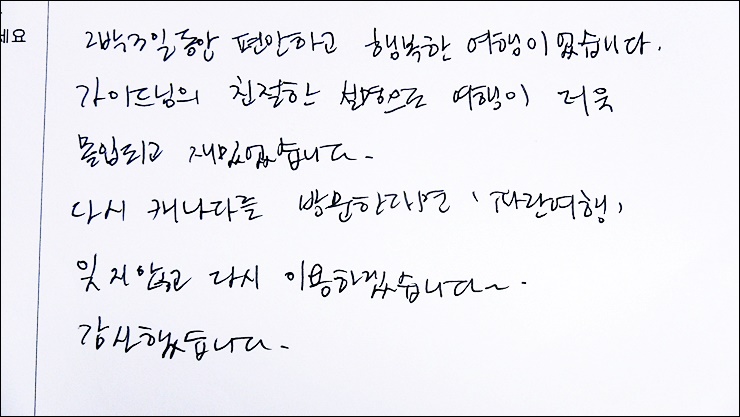 세요
2박3일동안 편안하고 행복한 여행이었습니다.
가이드님의 친절한 설명으로 여행이 더욱
몰입되고 재밌었습니다.
다시 캐나다를 방문한다면 '파란여행'
잊지않고 다시 이용하겠습니다~.
감사했습니다.